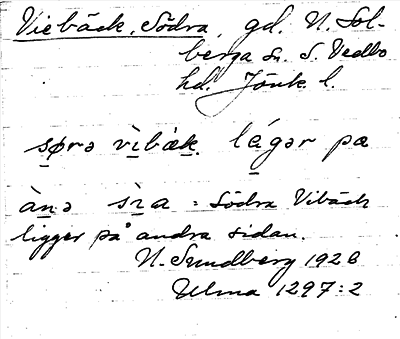 Viebäck, Södra, gd. N. Sol-
berga sn. S. Vedbo
hd. Jönk. l.
sørə vìbàk lágər pæ
ànə sìa : Södra Vibäck
ligger på andra sidan.
N. Sundberg 1928
Ulma 1297:2